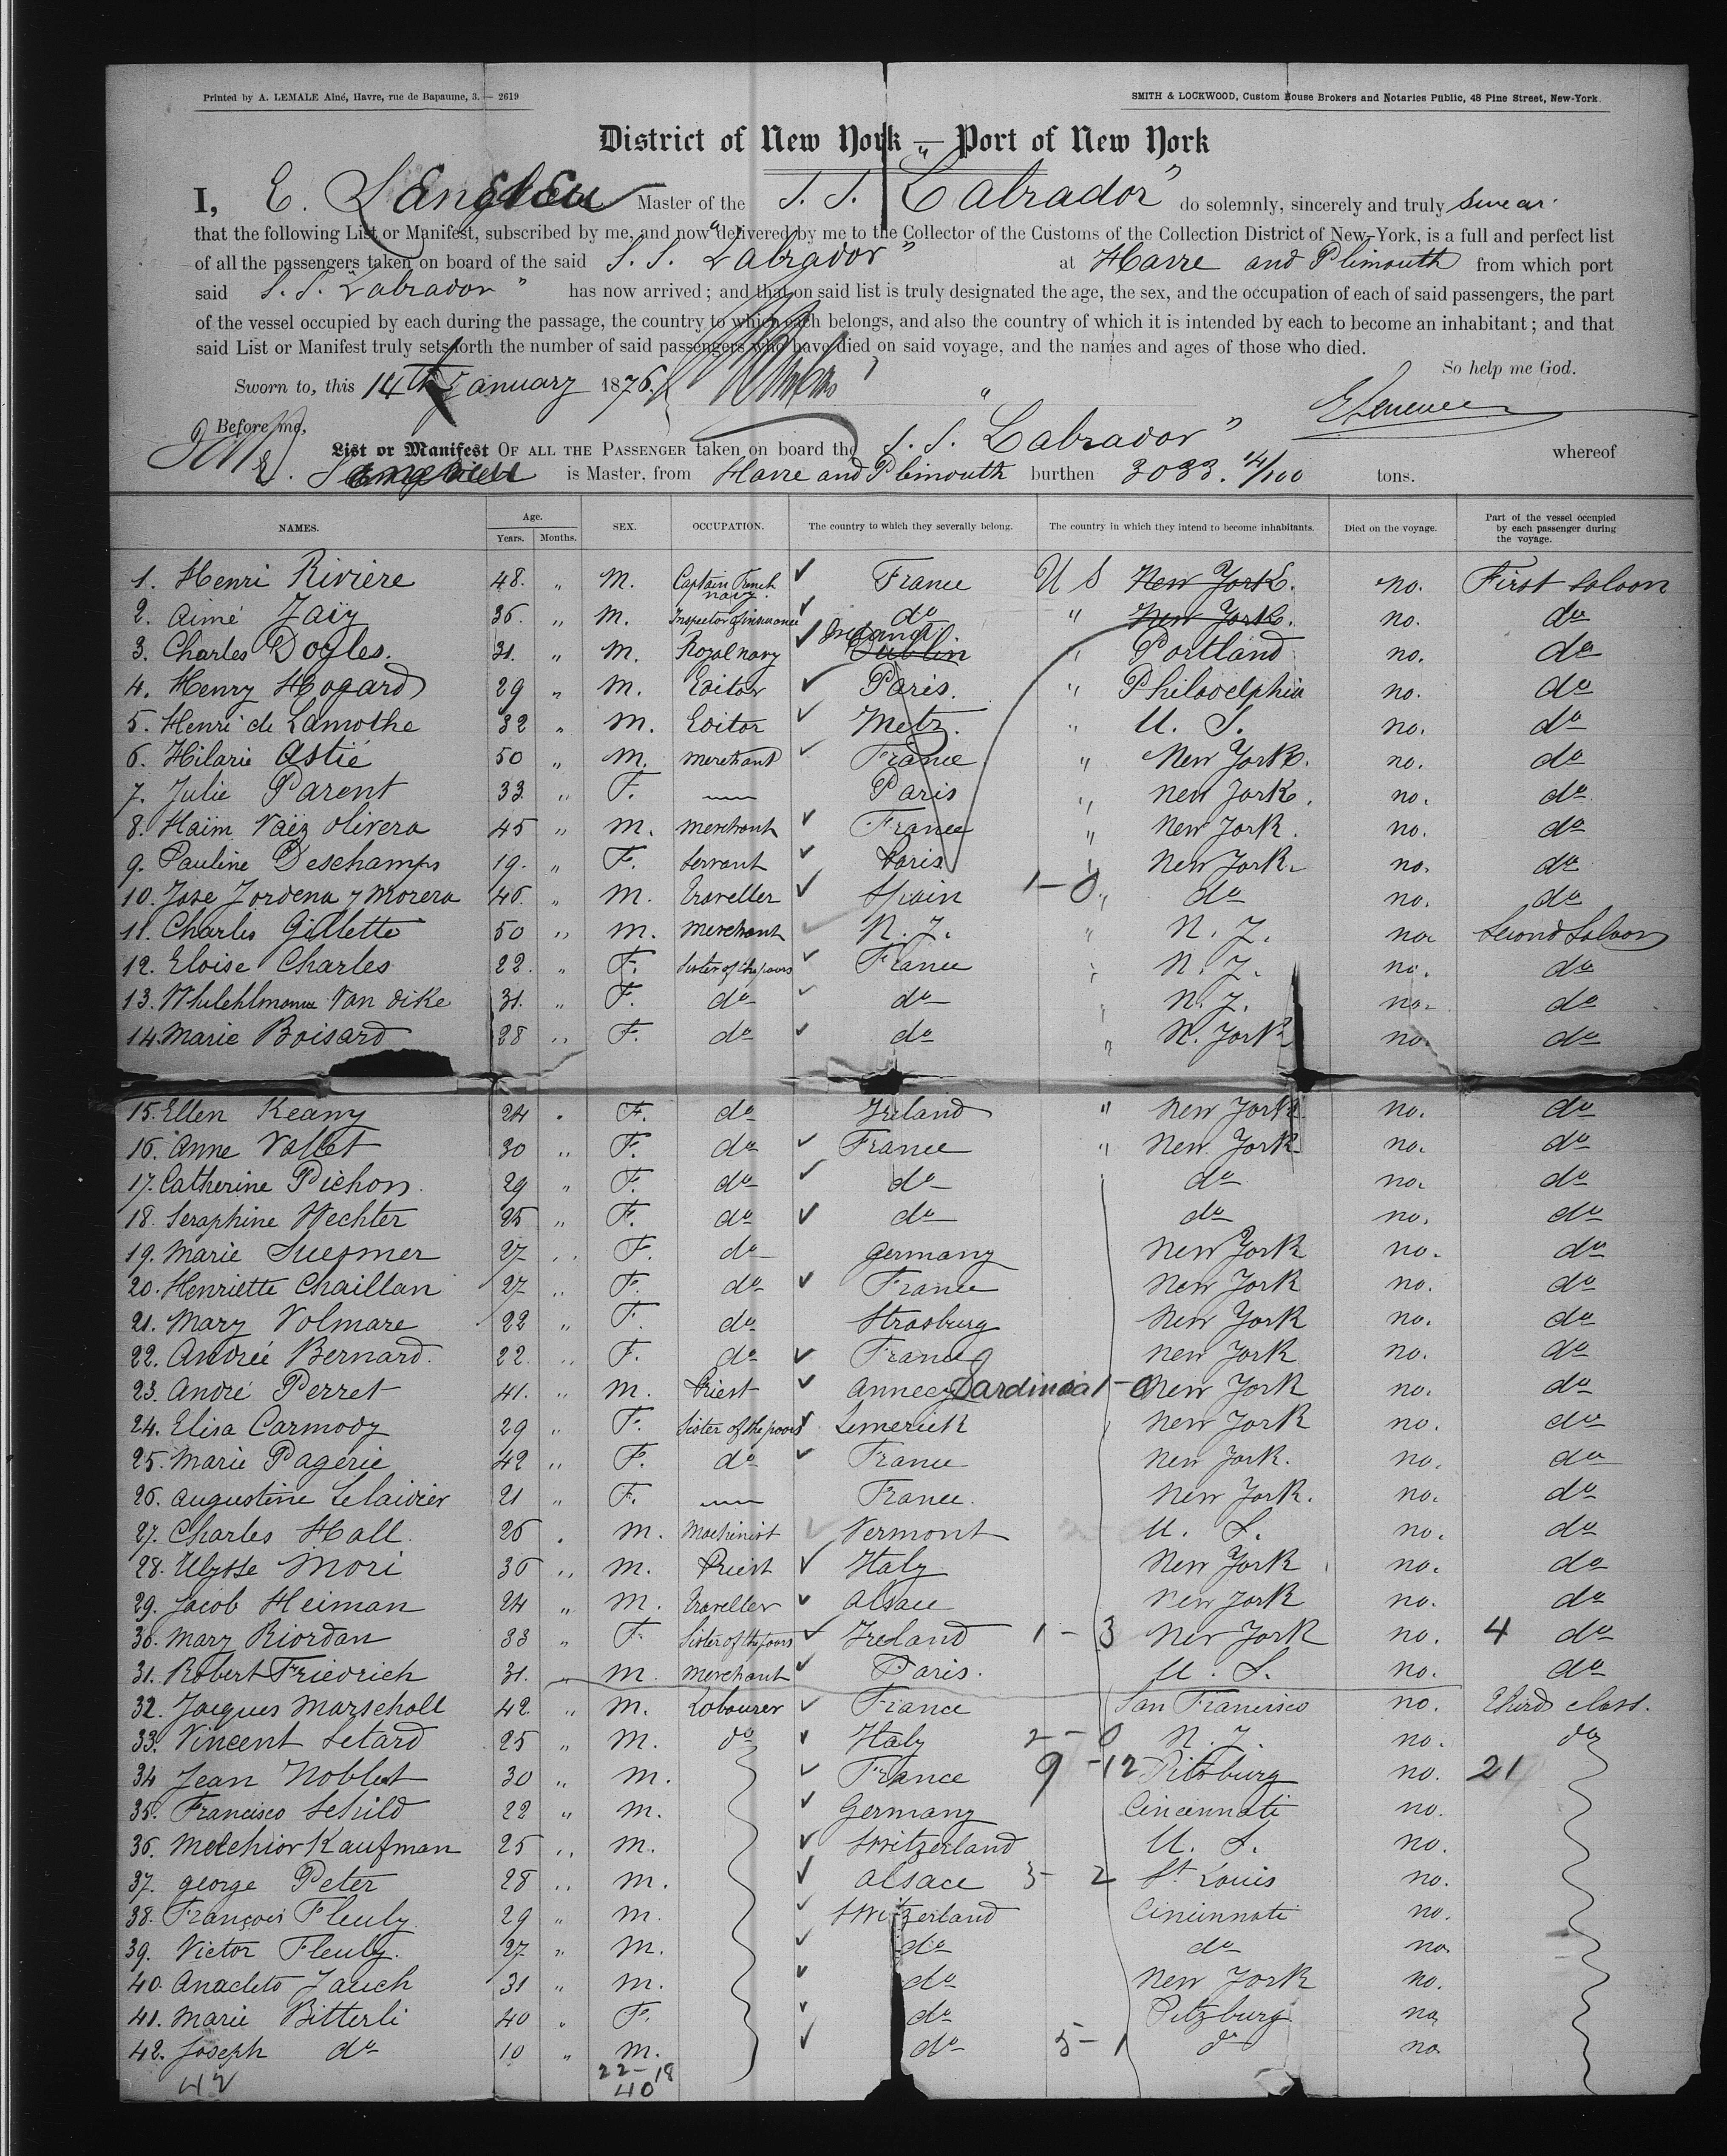 Printed by A. LEMALE Aîné, Havre, rue de Bapaume, 3. — 2619
SMITH & LOCKWOOD, Custom House Brokers and Notaries Public, 48 Pine Street, New-York.
District of New York — Port of New York
I, E. Master of the S. S. "Labrador" do solemnly, sincerely and truly swear
that the following List or Manifest, subscribed by me, and now delivered by me to the Collector of the Customs of the Collection District of New-York, is a full and perfect list
of all the passengers taken on board of the said S. S. "Labrador" at Havre and Plimouth from which port
said S. S. "Labrador" has now arrived; and that on said list is truly designated the age, the sex, and the occupation of each of said passengers, the part
of the vessel occupied by each during the passage, the country to which each belongs, and also the country of which it is intended by each to become an inhabitant; and that
said List or Manifest truly sets forth the number of said passengers who have died on said voyage, and the names and ages of those who died.
So help me God.
Sworn to, this 14th January 1876.
Before me,
List or Manifest OF ALL THE PASSENGER taken on board the S. S. "Labrador" whereof
E. is Master, from Havre and Plimouth burthen 3033. 14/100 tons.
NAMES. Age. Years. Months. SEX. OCCUPATION. The country to which they severally belong. The country in which they intend to become inhabitants. Died on the voyage. Part of the vessel occupied by each passenger during the voyage.
1. Henri Rivière 48. " M. Captain French navy. France U S New York. no. First Saloon
2. Aimé Jaÿ 36. " M. Inspector of insurance do " New York. no. do
3. Charles Doyles. 31. " M. Royal navy Ireland. Dublin " Portland no. do
4. Henry Hogard 29 " M. Editor Paris. " Philadelphia no. do
5. Henri de Lamothe 32 " M. Editor Metz. " U. S. no. do
6. Hilarie Astié 50 " M. merchant France " New York. no. do
7. Julie Parent 33 " F. — Paris " New York. no. do
8. Haïm Vaëz Olivera 45 " M. merchant France " New York. no. do
9. Pauline Deschamps 19. " F. Servant Paris " New York. no. do
10. Jose Jordena y Morera 46. " M. traveller Spain 1-0 " do no. do
11. Charles Gillette 50 " M. Merchant N. Y. " N. Y. no Second Saloon
12. Eloise Charles 22. " F. Sister of the poors France " N. Y. no. do
13. Van Dike 31. " F. do do " N. Y. no. do
14. Marie Boisard 28 " F. do do " N. York no. do
15. Ellen Keany 24 " F. do Ireland " New York no. do
16. Anne Vallet 30 " F. do France " New York no. do
17. Catherine Pichon. 29 " F. do do do no. do
18. Seraphine Wechter 25 " F. do do do no. do
19. Marie Suesmer 27 " F. do Germany New York no. do
20. Henriette Chaillan 27 " F. do France New York no. do
21. Mary Volmare 22 " F. do Strasburg New York no. do
22. Andreé Bernard. 22. " F. do France New York no. do
23. André Perret 41. " M. Priest Annecy Sardinia 1-0 New York no. do
24. Elisa Carmody 29 " F. Sister of the poors Limerick New York no. do
25. Marie Pagerie 42 " F. do France New York. no. do
26. Augustine Lelaidier 21 " F. — France. New York. no. do
27. Charles Hall. 26 " M. Machinist Vermont U. S. no. do
28. Ulysse Mori 36 " M. Priest Italy New York no. do
29. Jacob Heiman 24 " M. traveller Alsace New York no. do
30. Mary Riordan 33 " F. Sister of the poors Ireland 1-3 New York no. 4 do
31. Robert Friedrich 31. " M. merchant Paris. U. S. no. do
32. Jacques Marscholl 42. " M. Labourer France San Francisco no. third class.
33. Vincent Letard 25 " M. do Italy 2-0 N. Y. no. do
34 Jean Noblet 30 " M. France 9-12 Pitsburg no. 21
35. Francisco Schild 22 " M. Germany Cincinnati no.
36. Melchior Kaufman 25 " M. Switzerland U. S. no.
37. George Peter 28 " M. Alsace 3-2 St. Louis no.
38. François Fleuly 29 " M. Switzerland Cincinnati no.
39. Victor Fleuly. 27 " M. do do no
40. Anacleto Jauch 31 " M. do New York no.
41. Marie Bitterli 40 " F. do Pitzburg no
42. Joseph do 10 " M. do 5-1 do no
42 22-18
40